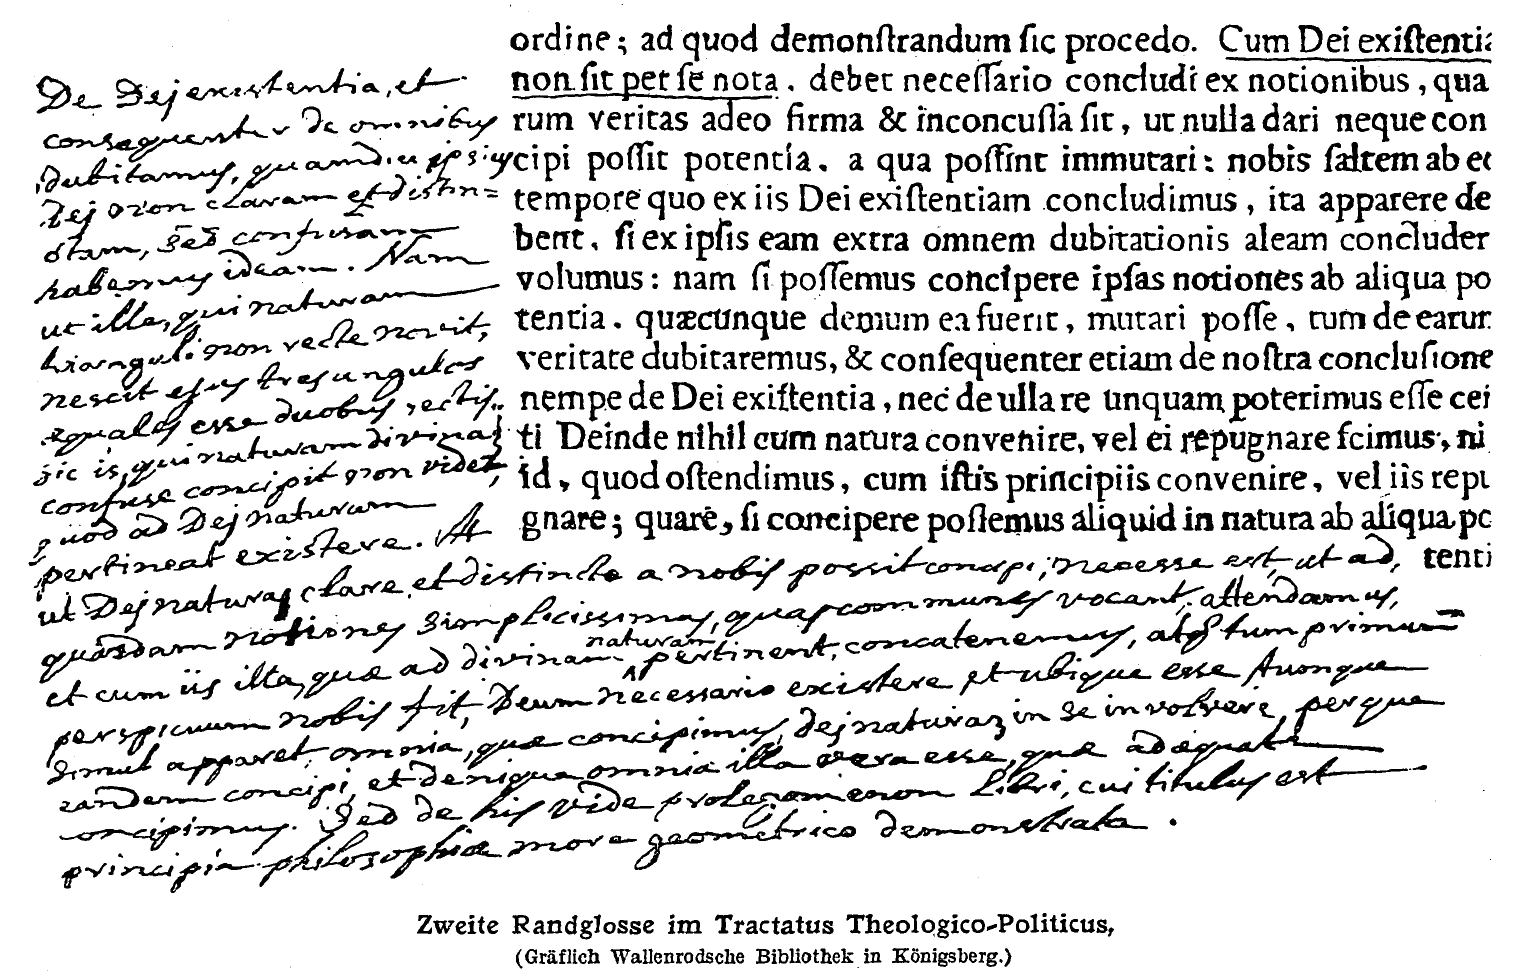 ordine; ad quod demonſtrandum ſic procedo. Cum Dei exiſtentia
non ſit per ſe nota, debet neceſſario concludi ex notionibus, qua
rum veritas adeo firma & inconcuſſa ſit, ut nulla dari neque con
cipi poſſit potentia, a qua poſſint immutari: nobis ſaltem ab eo
tempore quo ex iis Dei exiſtentiam concludimus, ita apparere de
bent, ſi ex ipſis eam extra omnem dubitationis aleam concluder
volumus: nam ſi poſſemus concipere ipſas notiones ab aliqua po
tentia, quæcunque demum ea fuerit, mutari poſſe, tum de earum
veritate dubitaremus, & conſequenter etiam de noſtra concluſione
nempe de Dei exiſtentia, nec de ulla re unquam poterimus eſſe cer
ti Deinde nihil cum natura convenire, vel ei repugnare ſcimus, ni
id, quod oſtendimus, cum iſtis principiis convenire, vel iis repu
gnare; quare, ſi concipere poſſemus aliquid in natura ab aliqua po
tenti
De Dej existentia, et
consequenter de omnibus
dubitamus, quamdiu ipsius
Dej non claram et distin=
ctam, sed confusam
habemus ideam. Nam
ut ille, qui naturam
trianguli non recte novit,
nescit ejus tres angulos
æquales esse duobus rectis,
sic is, qui naturam divinam
confuse concipit non videt,
quod ad Dej naturam
pertineat existere. At
ut Dej natura clare et distincte a nobis possit concipi, necesse est, ut ad
quasdam notiones simplicissimas, quas communes vocant, attendamus,
et cum iis illa, quæ ad divinam naturam pertinent, concatenemus, atq; tum primum
perspicuum nobis fit, Deum necessario existere et ubique esse tuncque
simul apparet, omnia, quæ concipimus, dej naturam in se involvere, perque
eandem concipi, et denique omnia illa vera esse, quæ adæquate
concipimus. Sed de his vide prolegomenon Libri, cui titulus est
principia philosophiæ more geometrico demonstrata.
Zweite Randglosse im Tractatus Theologico-Politicus,
(Gräflich Wallenrodsche Bibliothek in Königsberg.)